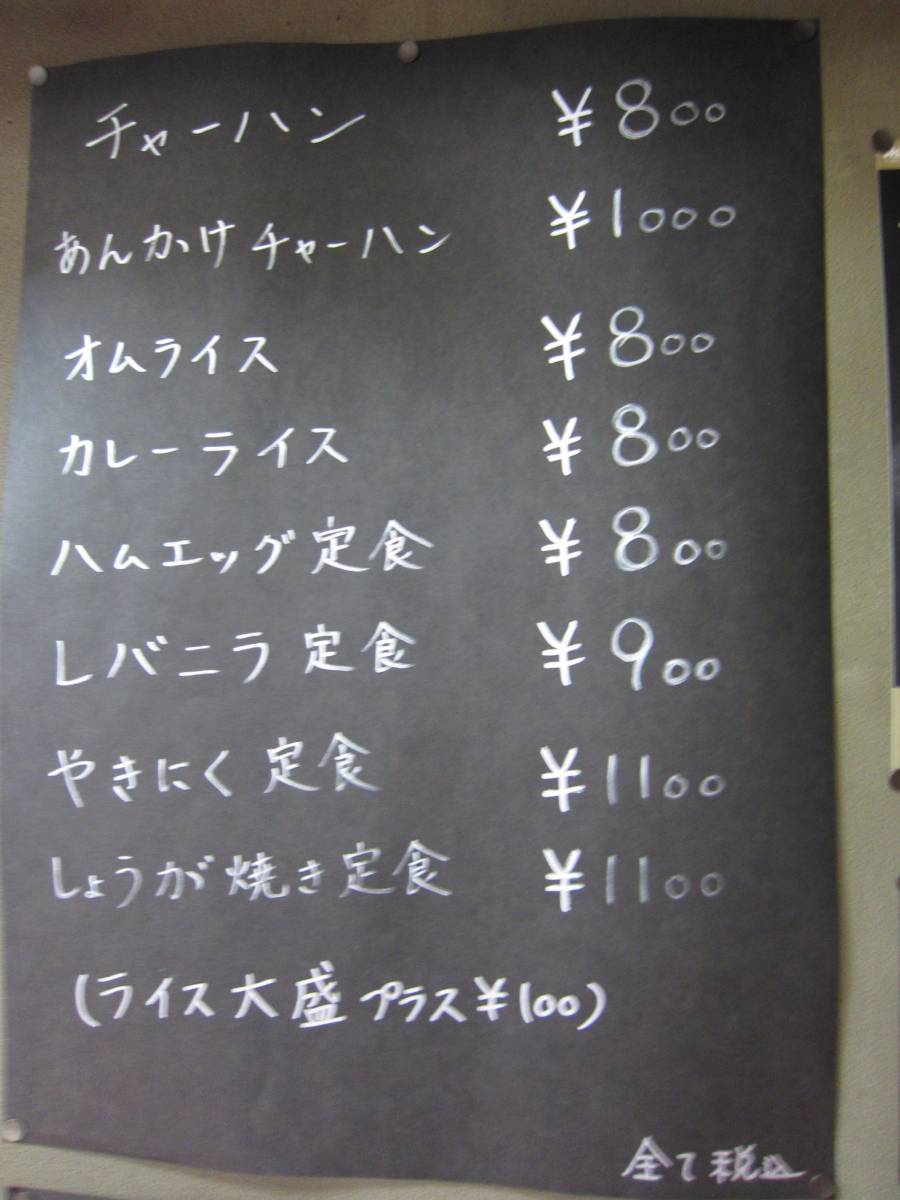 チャーハン ¥800
あんかけチャーハン ¥1000
オムライス ¥800
カレーライス ¥800
ハムエッグ定食 ¥800
レバニラ定食 ¥900
やきにく定食 ¥1100
しょうが焼き定食 ¥1100
(ライス大盛プラス¥100)
全て税込